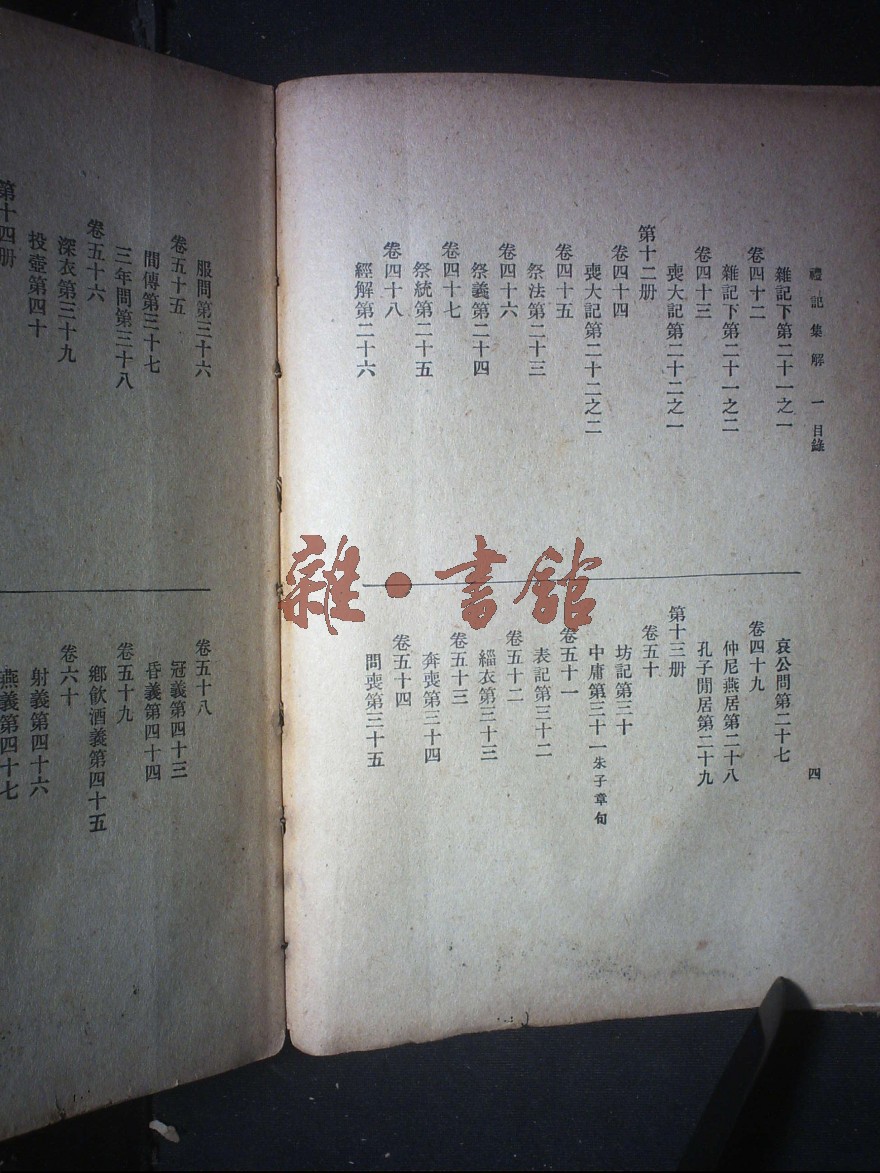 禮記集解 一 目錄
雜記下第二十一之一
卷四十二
雜記下第二十一之二
卷四十三
喪大記第二十二之一
第十二册
卷四十四
喪大記第二十二之二
卷四十五
祭法第二十三
卷四十六
祭義第二十四
卷四十七
祭統第二十五
卷四十八
經解第二十六
四
哀公問第二十七
卷四十九
仲尼燕居第二十八
孔子閒居第二十九
第十三册
卷五十
坊記第三十
中庸第三十一朱子章句
卷五十一
表記第三十二
卷五十二
緇衣第三十三
卷五十三
奔喪第三十四
卷五十四
問喪第三十五
服問第三十六
卷五十五
間傳第三十七
三年問第三十八
卷五十六
深衣第三十九
投壺第四十
第十四册
卷五十八
冠義第四十三
昏義第四十四
卷五十九
鄉飲酒義第四十五
卷六十
射義第四十六
燕義第四十七
雜·書館